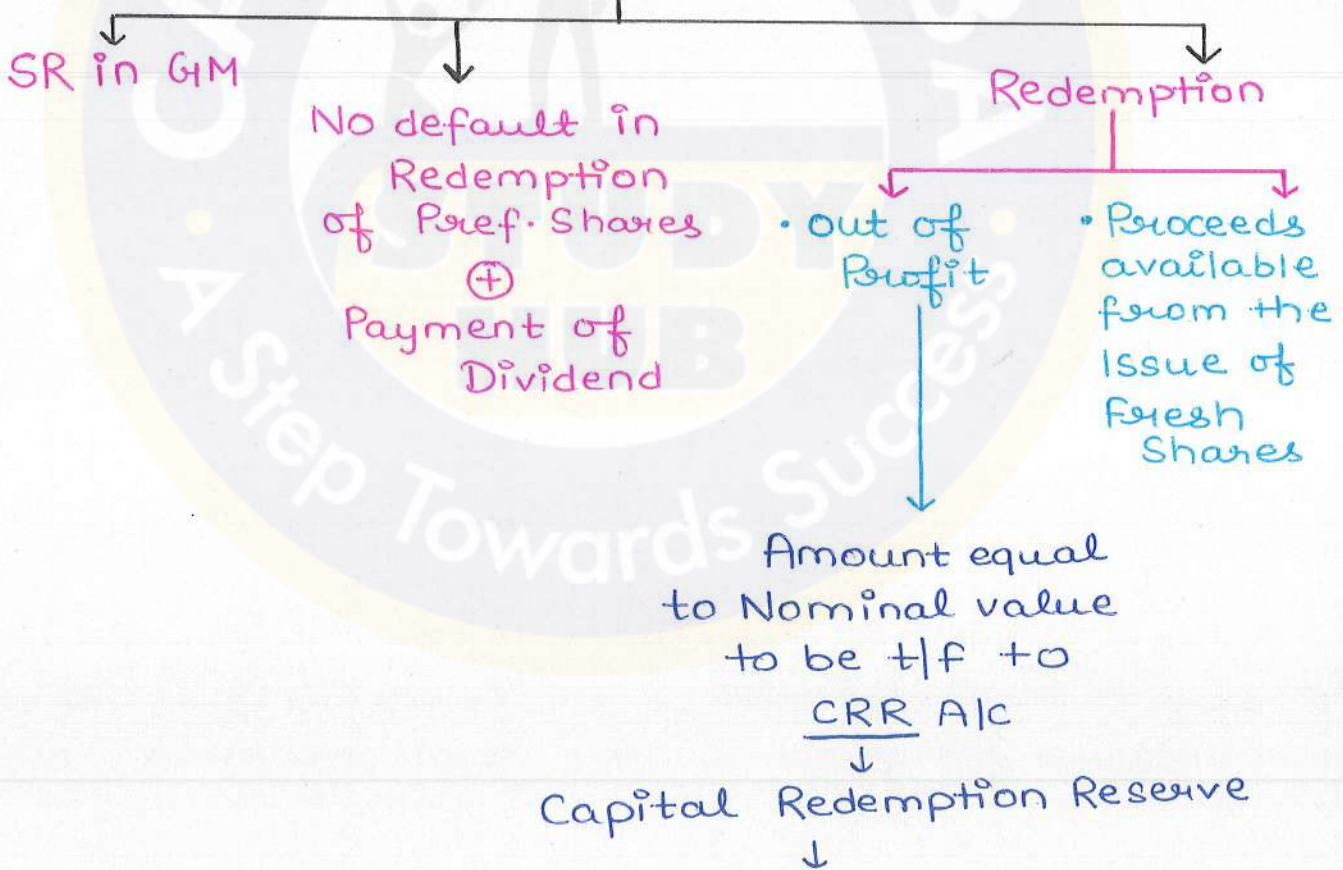 SR in GM
No default in
Redemption
of Pref. Shares
+
Payment of
Dividend
Redemption
• out of
Profit
• Proceeds
available
from the
Issue of
Fresh
Shares
Amount equal
to Nominal value
to be t/f to
CRR A/c
Capital Redemption Reserve
STUDY
HUB
A Step Towards Success